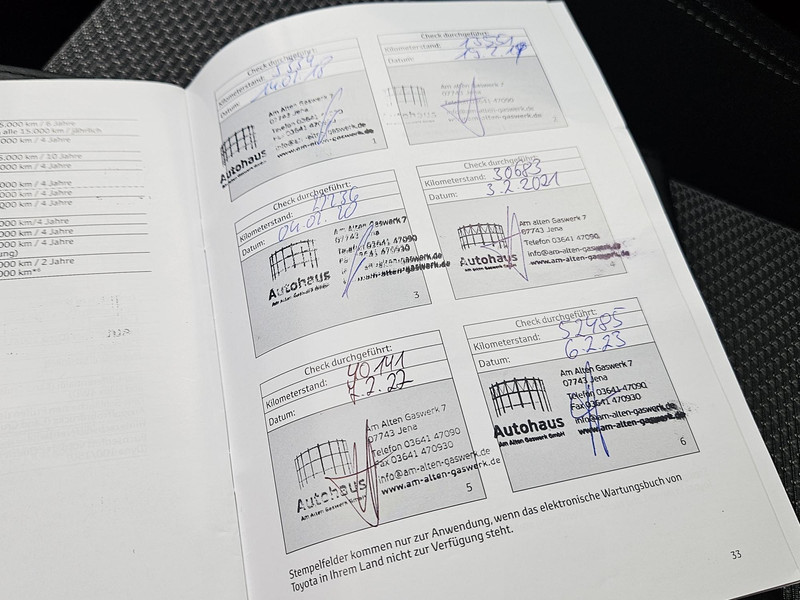 5.000 km / 6 Jahre
alle 15.000 km / jährlich
000 km / 4 Jahre
5.000 km / 10 Jahre
000 km / 4 Jahre
000 km / 4 Jahre
000 km / 4 Jahre
000 km / 4 Jahre
000 km/4 Jahre
000 km / 4 Jahre
000 km / 4 Jahre
ung)
000 km / 2 Jahre
000 km*⁶
Check durchgeführt:
Kilometerstand:
Datum: 14.02.18
Am Alten Gaswerk 7
07743 Jena
Telefon 03641 47090
Fax 03641 470930
info@am-alten-gaswerk.de
www.am-alten-gaswerk.de
Autohaus
Am Alten Gaswerk GmbH
1
Check durchgeführt:
Kilometerstand:
Datum:
Am Alten Gaswerk 7
07743 Jena
2
Check durchgeführt:
Kilometerstand:
Datum: 04.02.20
Am Alten Gaswerk 7
Autohaus
Am Alten Gaswerk GmbH
3
Check durchgeführt:
Kilometerstand: 30683
Datum: 3.2.2021
Am alten Gaswerk 7
07743 Jena
Telefon 03641 47090
info@am-alten-gaswerk.de
www.am-alten-gaswerk.de
Autohaus
Am Alten Gaswerk GmbH
4
Check durchgeführt:
Kilometerstand: 40141
Datum: 7.2.22
Am Alten Gaswerk 7
07743 Jena
Telefon 03641 47090
Fax 03641 470930
info@am-alten-gaswerk.de
www.am-alten-gaswerk.de
Autohaus
Am Alten Gaswerk GmbH
5
Check durchgeführt:
Kilometerstand: 52485
Datum: 6.2.23
Am Alten Gaswerk 7
07743 Jena
Telefon 03641-47090
Fax 03641 470930
info@am-alten-gaswerk.de
www.am-alten-gaswerk.de
Autohaus
Am Alten Gaswerk GmbH
6
Stempelfelder kommen nur zur Anwendung, wenn das elektronische Wartungsbuch von
Toyota in Ihrem Land nicht zur Verfügung steht.
33